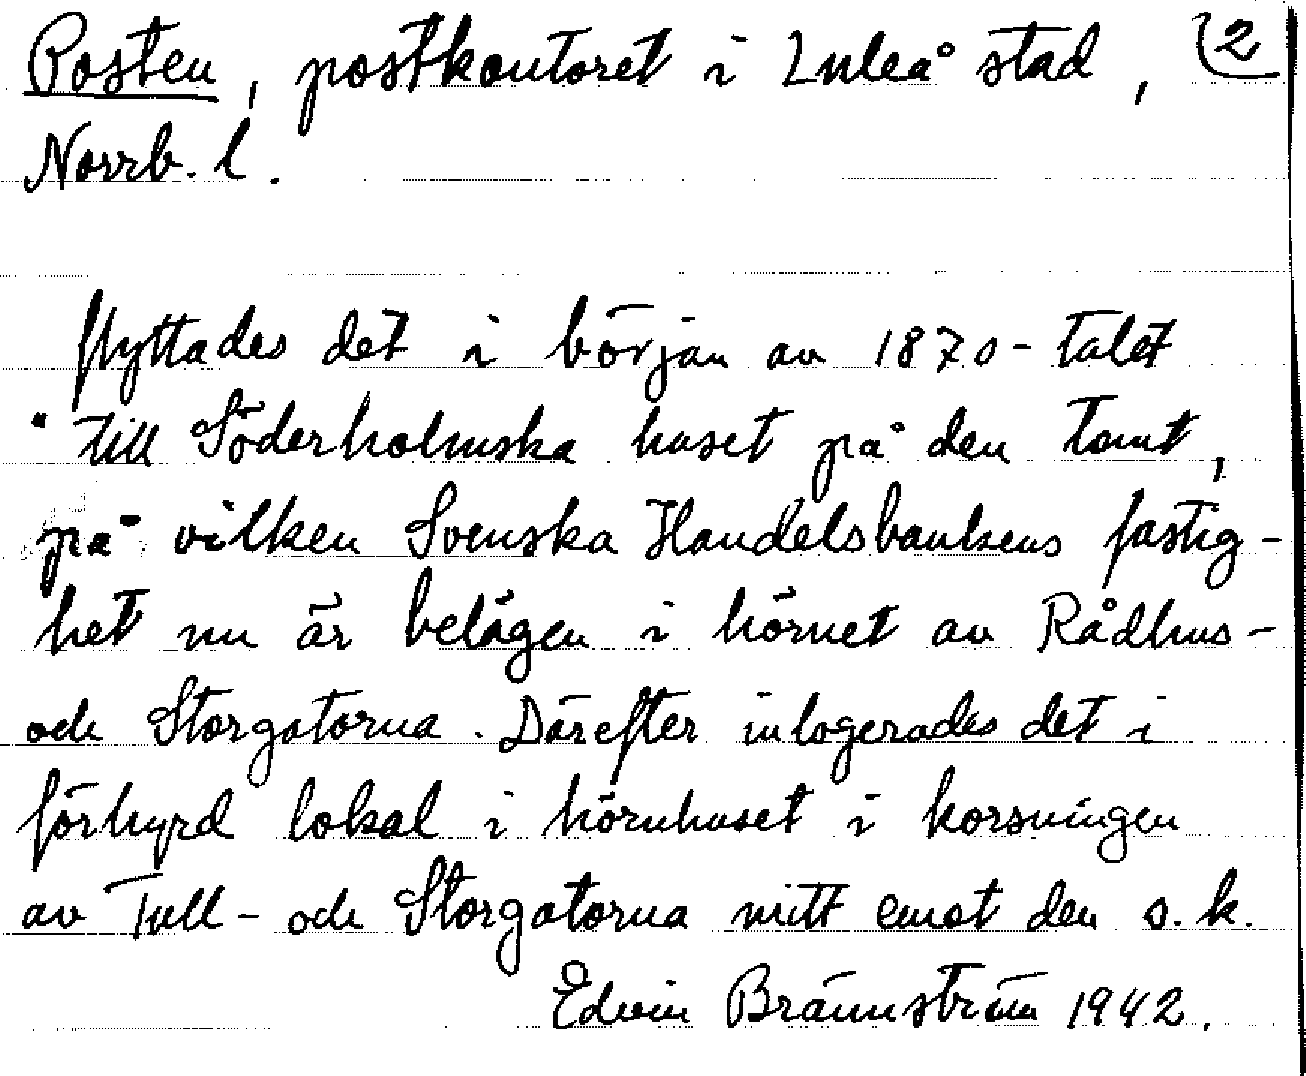 Posten, postkontoret i Luleå stad, 2
Norrb. l.
flyttades det i början av 1870-talet
till Söderholmska huset på den tomt,
på vilken Svenska Handelsbankens fastig-
het nu är belägen i hörnet av Rådhus-
och Storgatorna. Därefter inlogerades det i
förhyrd lokal i hörnhuset i korsningen
av Tull- och Storgatorna mitt emot den s.k.
Edvin Brännström 1942.